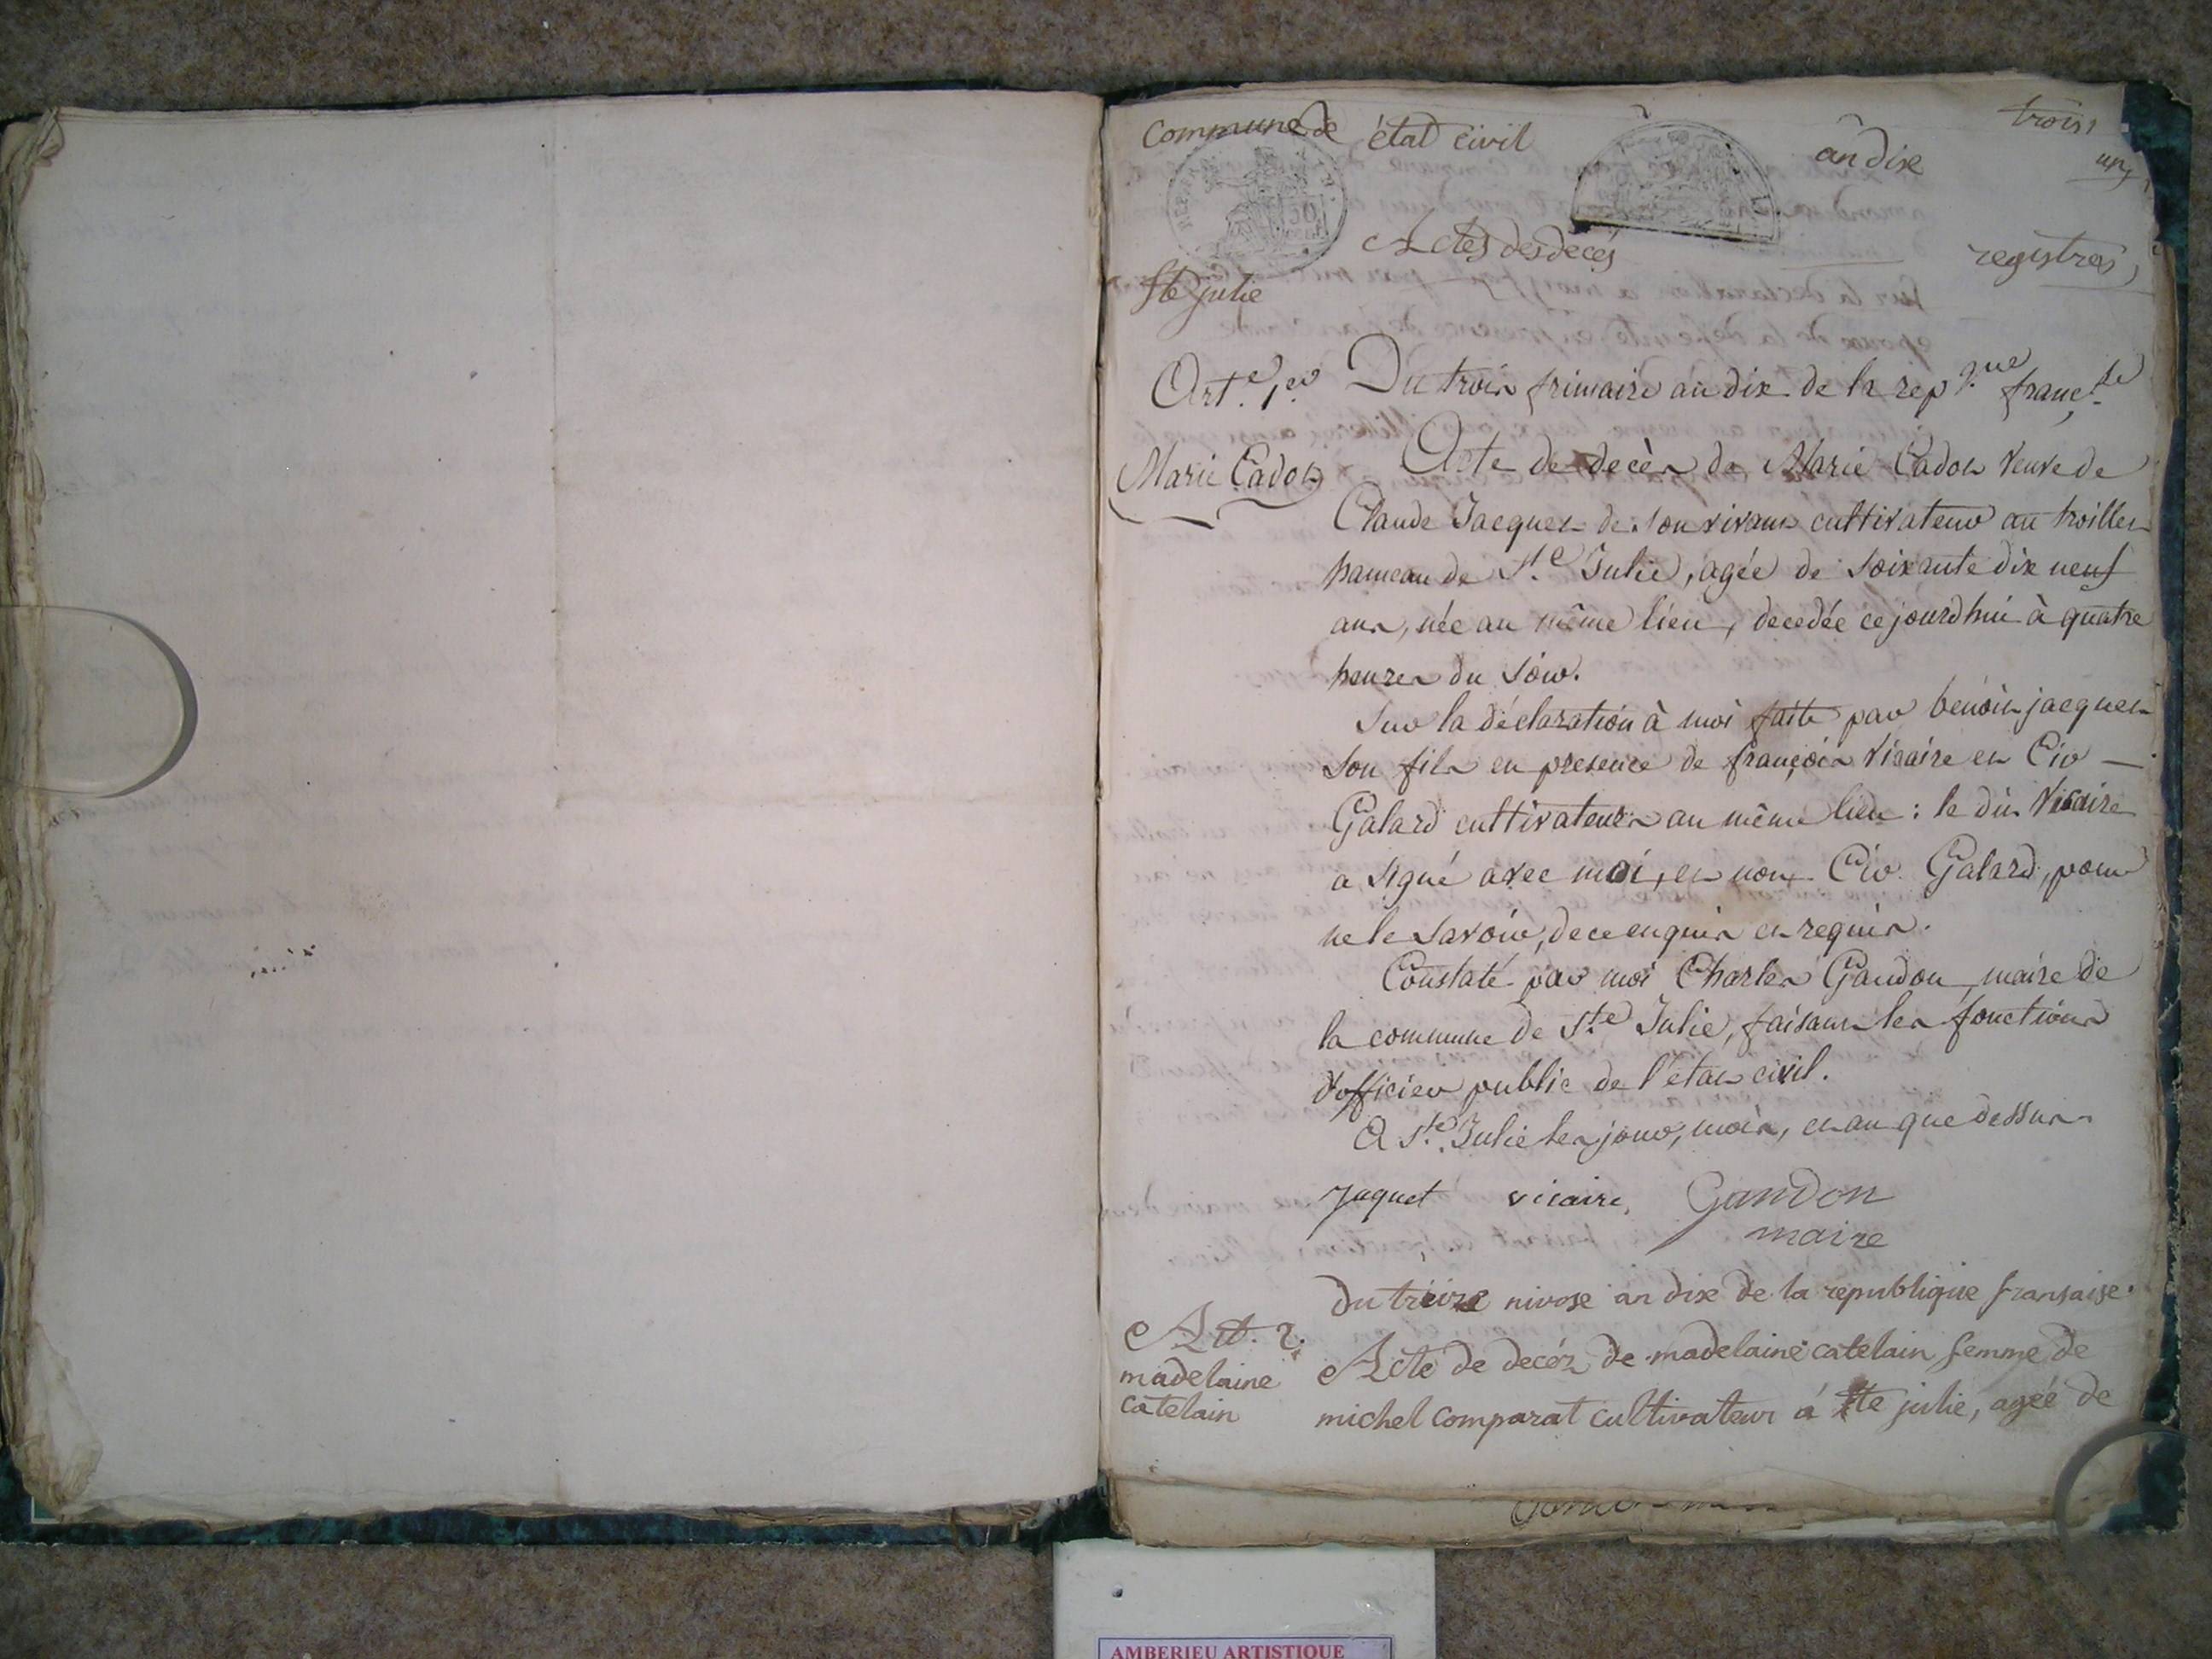 Commune de état civil an dix trois
un,
Actes des decés registres,
Ste julie
Art.e 1.er Du trois frimaire an dix de la rep.que franç.se
Marie Cadot Acte de decès de Marie Cadot veuve de
Claude Jacques de son vivant cultivateur au troillet
hameau de S.te Julie, agée de soixante dix neuf
ans, née au même lieu, decedée ce jourdhui à quatre
heures du soir.
Sur la déclaration à moi faite par benoit jacques
son fils en presence de françois Vicaire et Cir
Galard cultivateurs au même lieu : le dit Vicaire
a signé avec moi, et non Cir Galard, pour
ne le savoir, de ce enquis et requis.
Constaté par moi Charles Gandon maire de
la commune de S.te Julie, faisant les fonctions
d'officier public de l'état civil.
A S.te Julie les jour, mois, et an que dessus
Jaquet vicaire, Gandon
maire
Du treize nivose an dix de la republique fransaise.
Art. 2. Acte de decéz de madelaine catelain femme de
madelaine michel comparat cultivateur á Ste julie, agée de
catelain
AMBERIEU ARTISTIQUE